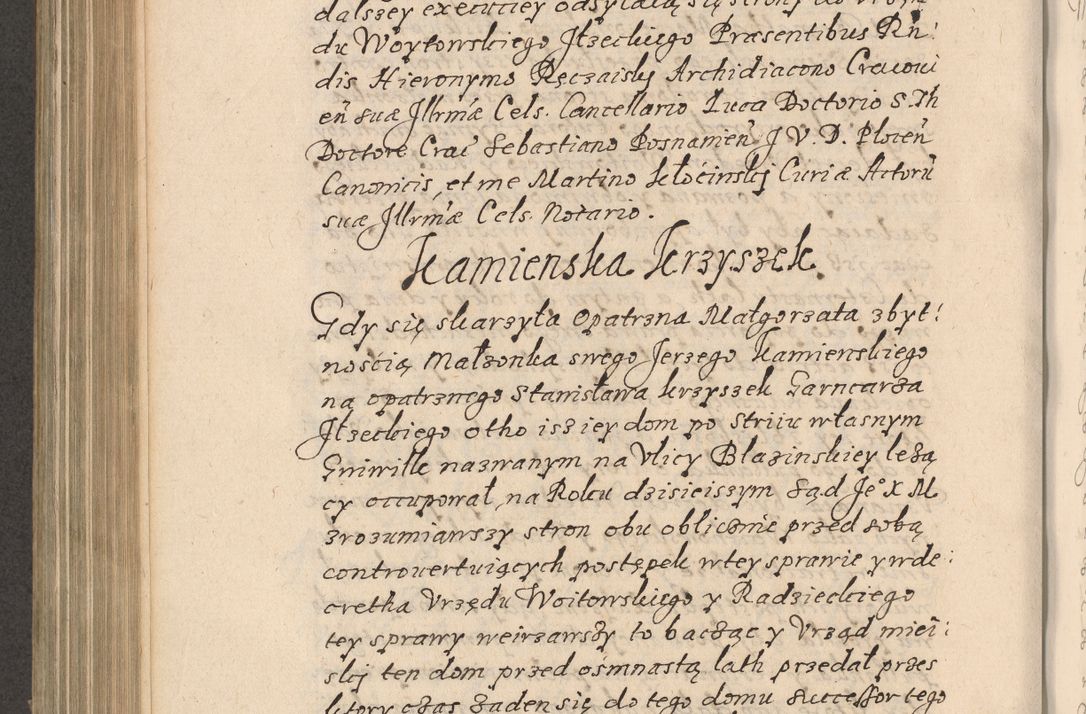 dalszey executiey odsyłaią się strony do Vrzę
du Woytowskiego Jłzeckiego Præsentibus Rñ
dis Hieronymo Ręczaisky Archidiacono Cracoui
eñ suæ Jllrmæ Cels. Cancellario Luca Doctorio S. Th
Doctore Crac̄ Sebastiano Posnanieñ J. V. D. Ploceñ
Canonicis, et me Martino Kłocinskj Curiæ Actorũ
suæ Jllrmæ Cels. Notario.
Kamienska Krzyszek
Gdy się skarzyła Opatrzna Małgorzata zbyt:
nością Małzonka swego Jerzego Kamienskiego
na opatrznego Stanisława Krzyszek Garncarza
Jłzeckiego otho isz iey dom po Striiu własnym
Gniwilk nazwanym na Vlicy Blazinskiey leżą
cy occupował, na Roku dzisieiszym Sąd Jeº X M.
zrozumiawszy stron obu oblicznie przed sobą
controuertuiących postępek wtey sprawie y wde:
cretha Vrzędu Woitowskiego y Radzieckiego
tey sprawy weirzawszy to bacząc y Vrząd miei:
skj ten dom przed osmnastą lath przedał przes
ktory czas żaden się do tego domu successor tego